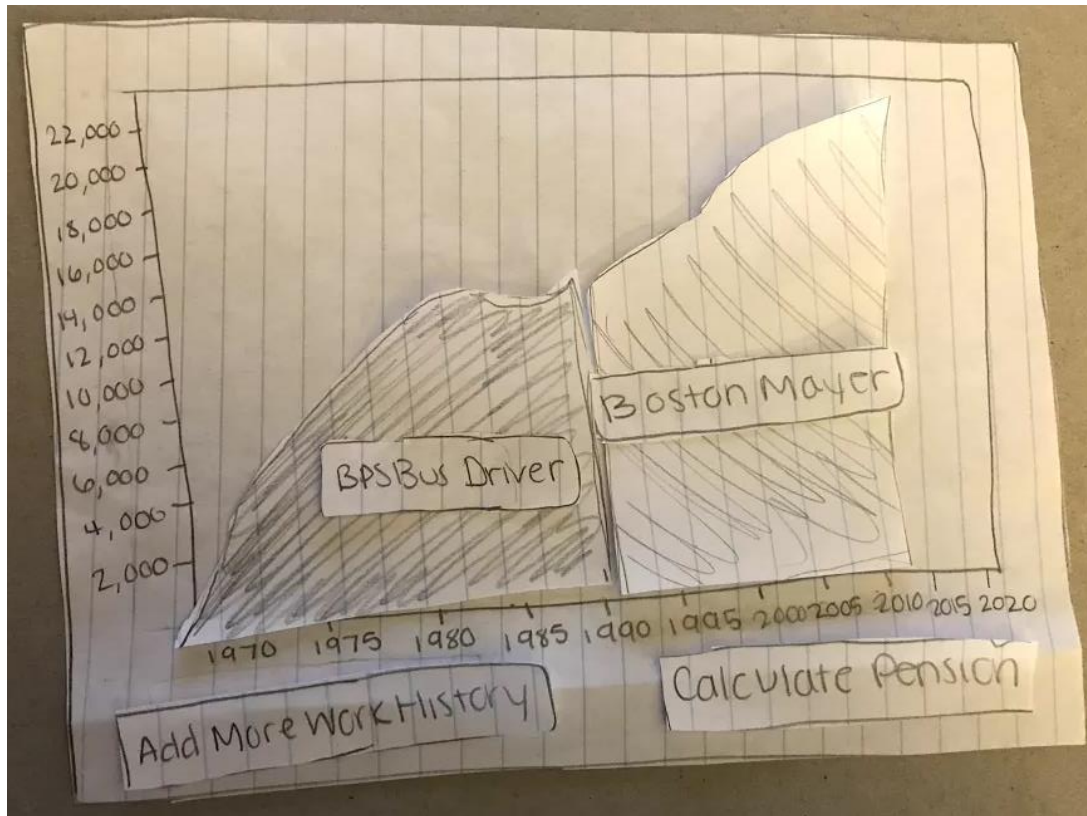 22,000
20,000
18,000
16,000
14,000
12,000
10,000
8,000
6,000
4,000
2,000
BPS Bus Driver
Boston Mayer
1970 1975 1980 1985 1990 1995 2000 2005 2010 2015 2020
Add More Work History
Calculate Pension